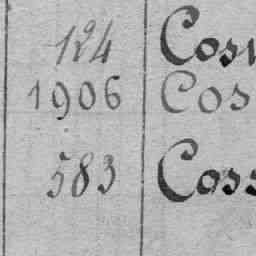 124 Cosi
1906 Cos
583 Coss